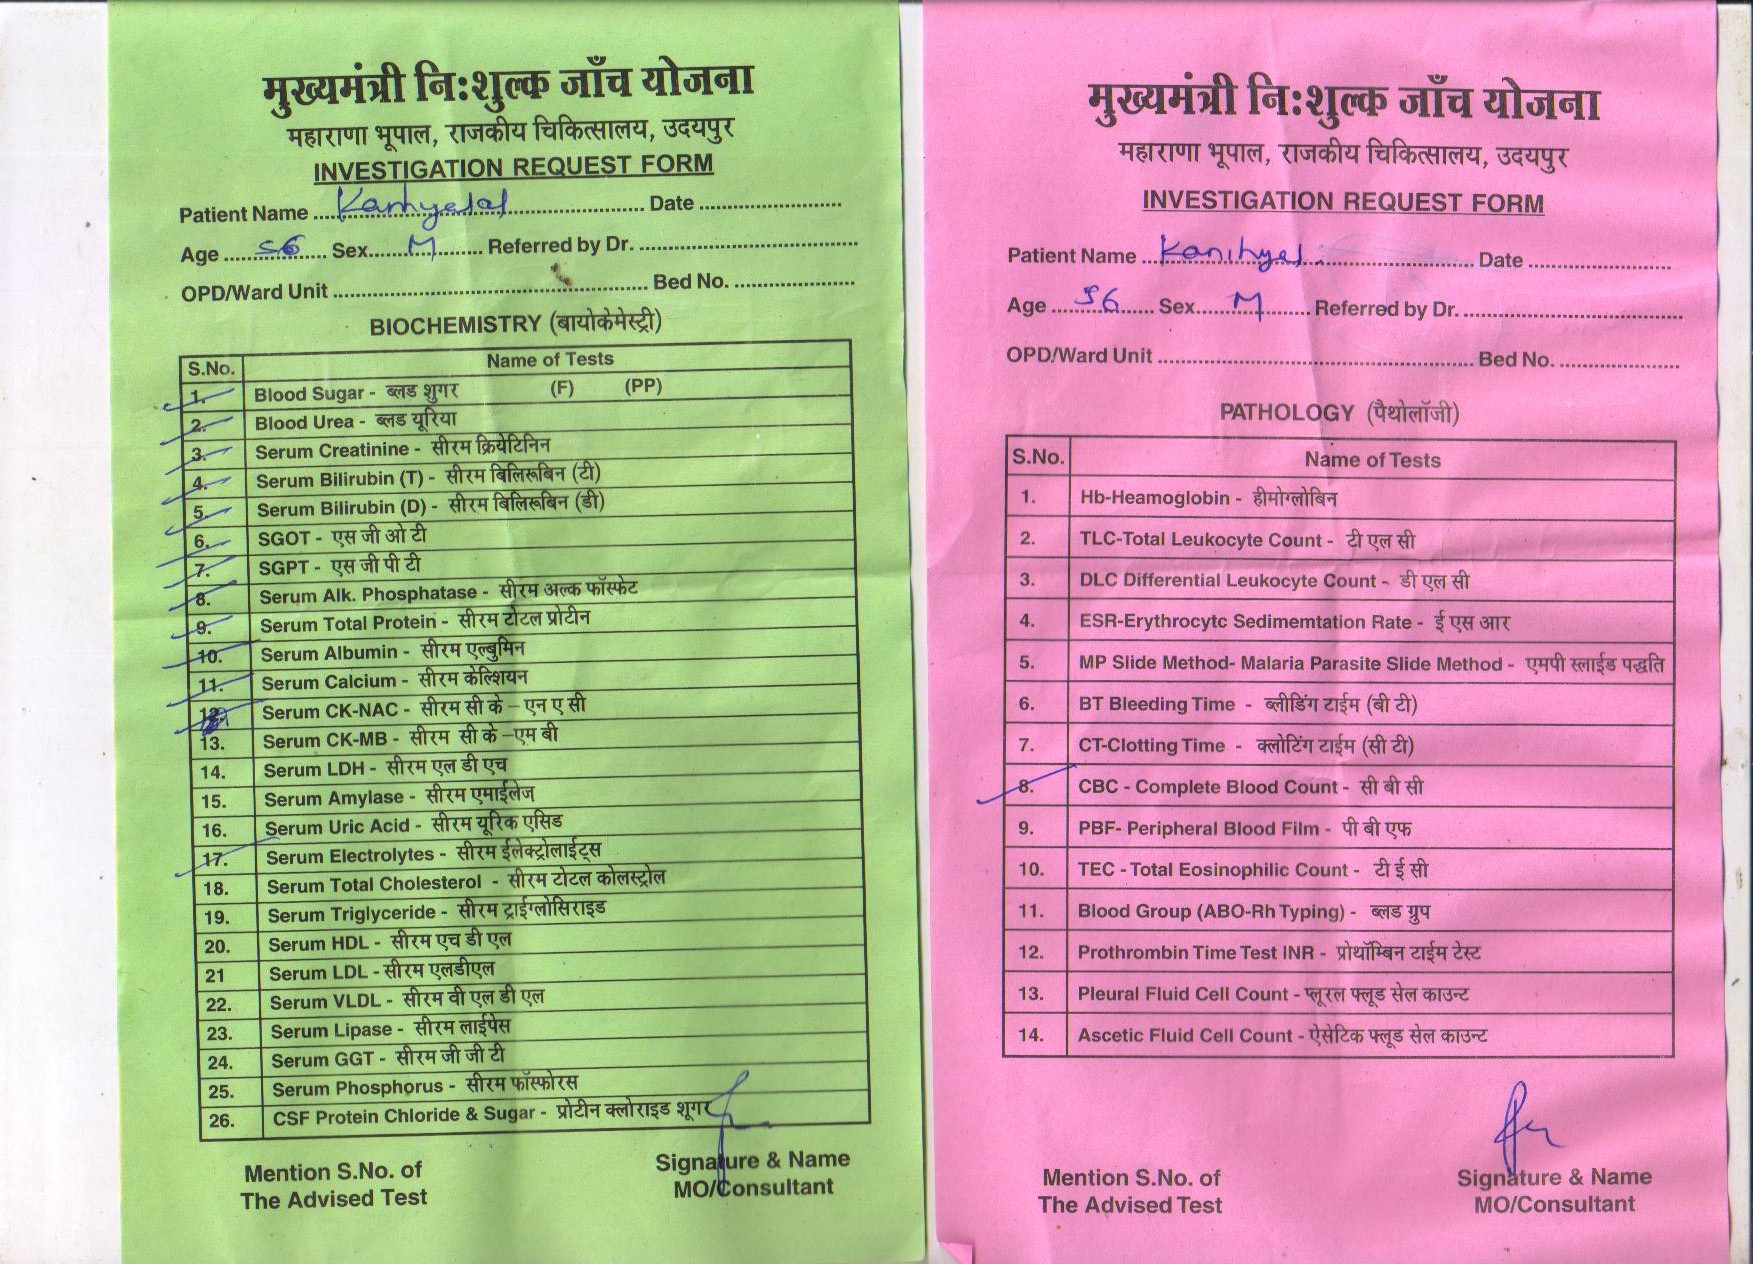 मुख्यमंत्री नि:शुल्क जाँच योजना
महाराणा भूपाल, राजकीय चिकित्सालय, उदयपुर
INVESTIGATION REQUEST FORM
Patient Name Kanhyalal Date
Age 56 Sex M Referred by Dr.
OPD/Ward Unit Bed No.
BIOCHEMISTRY (बायोकेमेस्ट्री)
S.No. Name of Tests
1. Blood Sugar - ब्लड शुगर (F) (PP)
2. Blood Urea - ब्लड यूरिया
3. Serum Creatinine - सीरम क्रियेटिनिन
4. Serum Bilirubin (T) - सीरम बिलिरूबिन (टी)
5. Serum Bilirubin (D) - सीरम बिलिरूबिन (डी)
6. SGOT - एस जी ओ टी
7. SGPT - एस जी पी टी
8. Serum Alk. Phosphatase - सीरम अल्क फॉस्फेट
9. Serum Total Protein - सीरम टोटल प्रोटीन
10. Serum Albumin - सीरम एल्बुमिन
11. Serum Calcium - सीरम केल्शियन
12. Serum CK-NAC - सीरम सी के – एन ए सी
13. Serum CK-MB - सीरम सी के –एम बी
14. Serum LDH - सीरम एल डी एच
15. Serum Amylase - सीरम एमाईलेज
16. Serum Uric Acid - सीरम यूरिक एसिड
17. Serum Electrolytes - सीरम ईलेक्ट्रोलाईट्स
18. Serum Total Cholesterol - सीरम टोटल कोलस्ट्रोल
19. Serum Triglyceride - सीरम ट्राईग्लोसिराइड
20. Serum HDL - सीरम एच डी एल
21 Serum LDL - सीरम एलडीएल
22. Serum VLDL - सीरम वी एल डी एल
23. Serum Lipase - सीरम लाईपेस
24. Serum GGT - सीरम जी जी टी
25. Serum Phosphorus - सीरम फॉस्फोरस
26. CSF Protein Chloride & Sugar - प्रोटीन क्लोराइड शूगर
Mention S.No. of Signature & Name
The Advised Test MO/Consultant
मुख्यमंत्री नि:शुल्क जाँच योजना
महाराणा भूपाल, राजकीय चिकित्सालय, उदयपुर
INVESTIGATION REQUEST FORM
Patient Name Kanihyal Date
Age 56 Sex M Referred by Dr.
OPD/Ward Unit Bed No.
PATHOLOGY (पैथोलॉजी)
S.No. Name of Tests
1. Hb-Heamoglobin - हीमोग्लोबिन
2. TLC-Total Leukocyte Count - टी एल सी
3. DLC Differential Leukocyte Count - डी एल सी
4. ESR-Erythrocytc Sedimemtation Rate - ई एस आर
5. MP Slide Method- Malaria Parasite Slide Method - एमपी स्लाईड पद्धति
6. BT Bleeding Time - ब्लीडिंग टाईम (बी टी)
7. CT-Clotting Time - क्लोटिंग टाईम (सी टी)
8. CBC - Complete Blood Count - सी बी सी
9. PBF- Peripheral Blood Film - पी बी एफ
10. TEC - Total Eosinophilic Count - टी ई सी
11. Blood Group (ABO-Rh Typing) - ब्लड ग्रुप
12. Prothrombin Time Test INR - प्रोथॉम्बिन टाईम टेस्ट
13. Pleural Fluid Cell Count - प्लूरल फ्लूड सेल काउन्ट
14. Ascetic Fluid Cell Count - ऐसेटिक फ्लूड सेल काउन्ट
Mention S.No. of Signature & Name
The Advised Test MO/Consultant